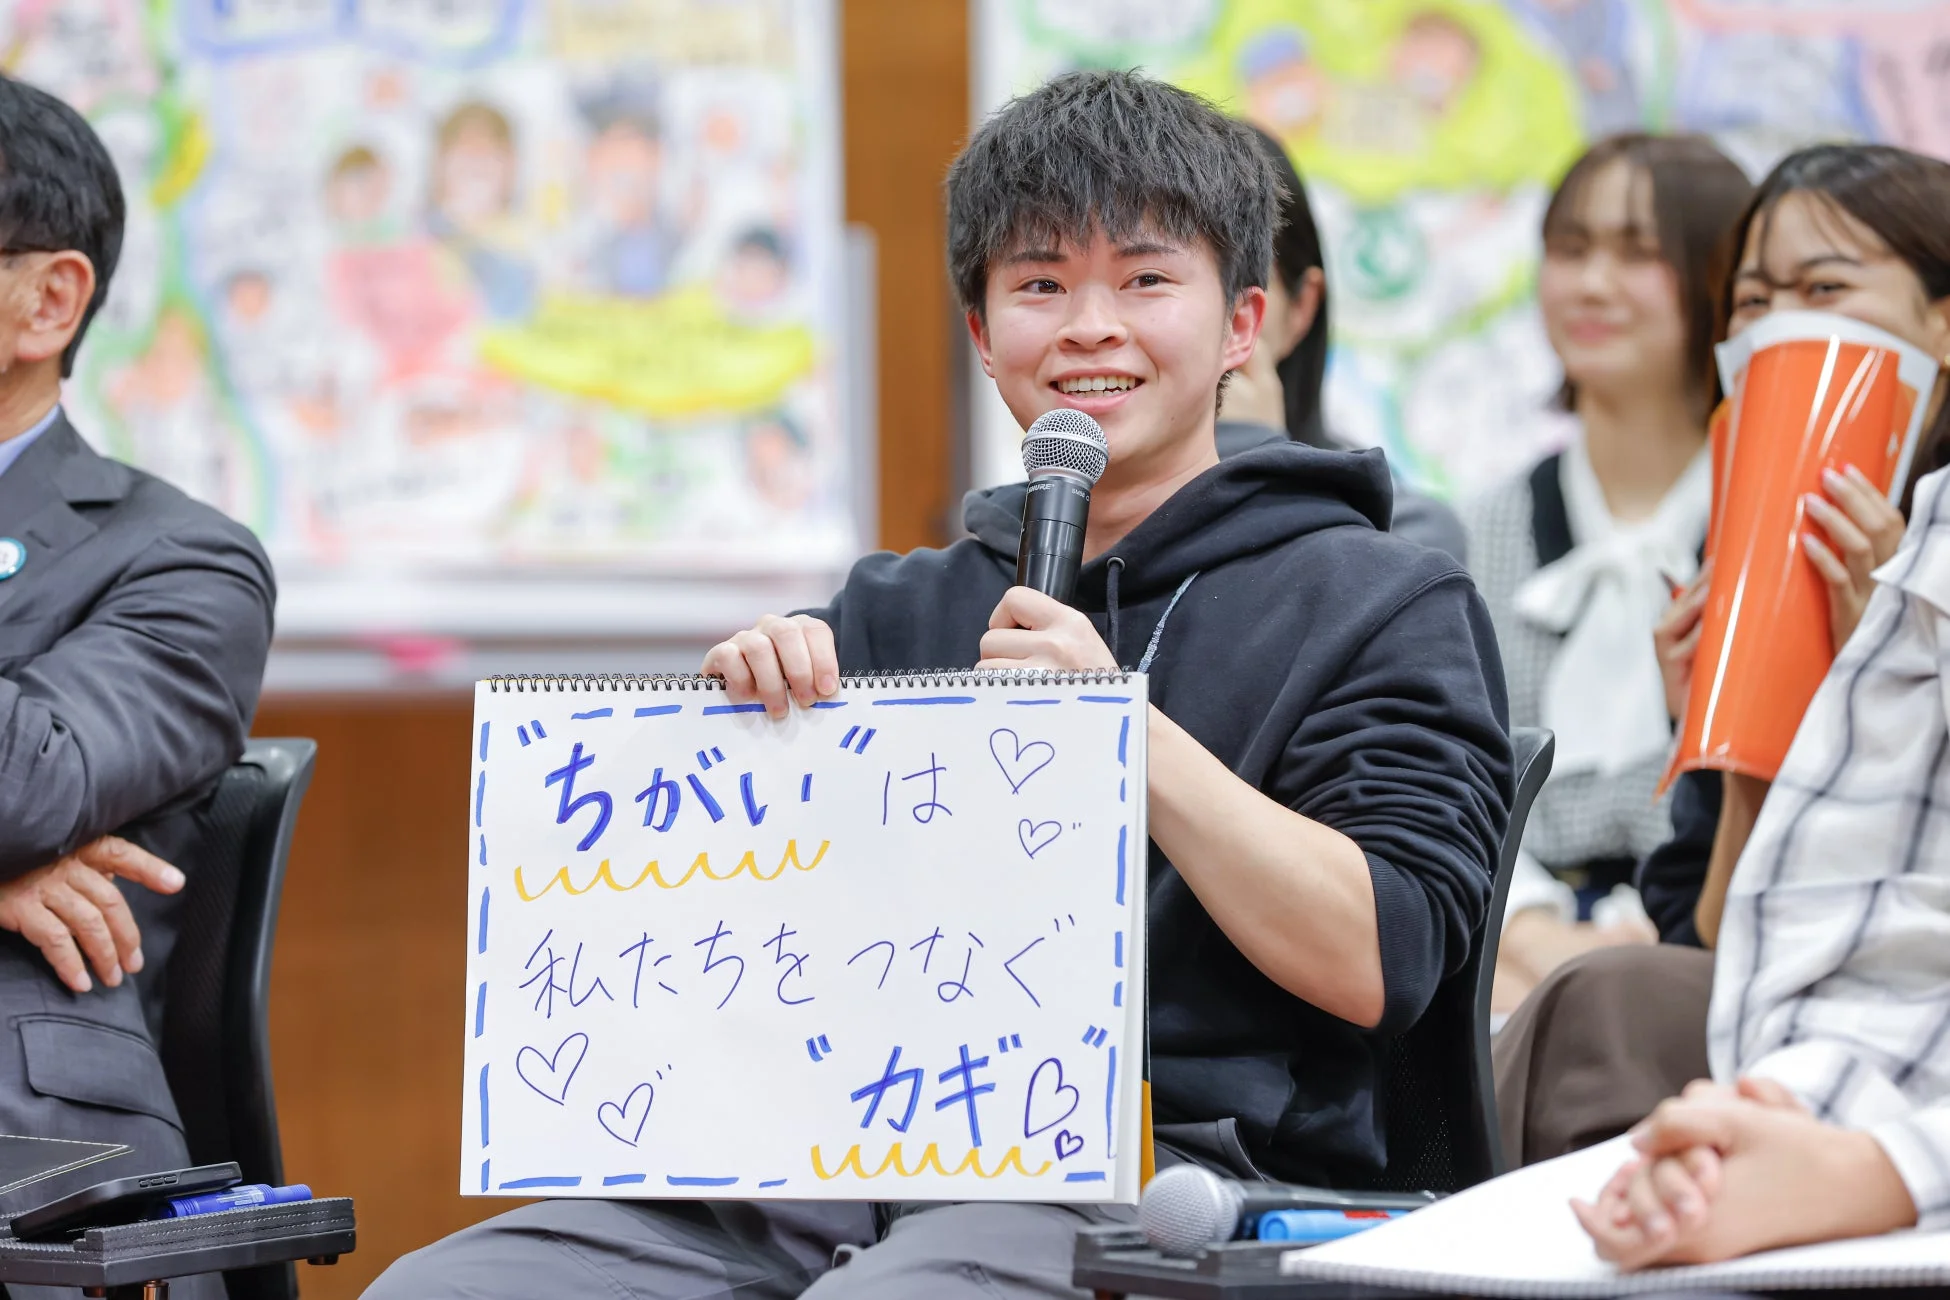 "ちがい"は
私たちをつなぐ
"カギ"
SHURE